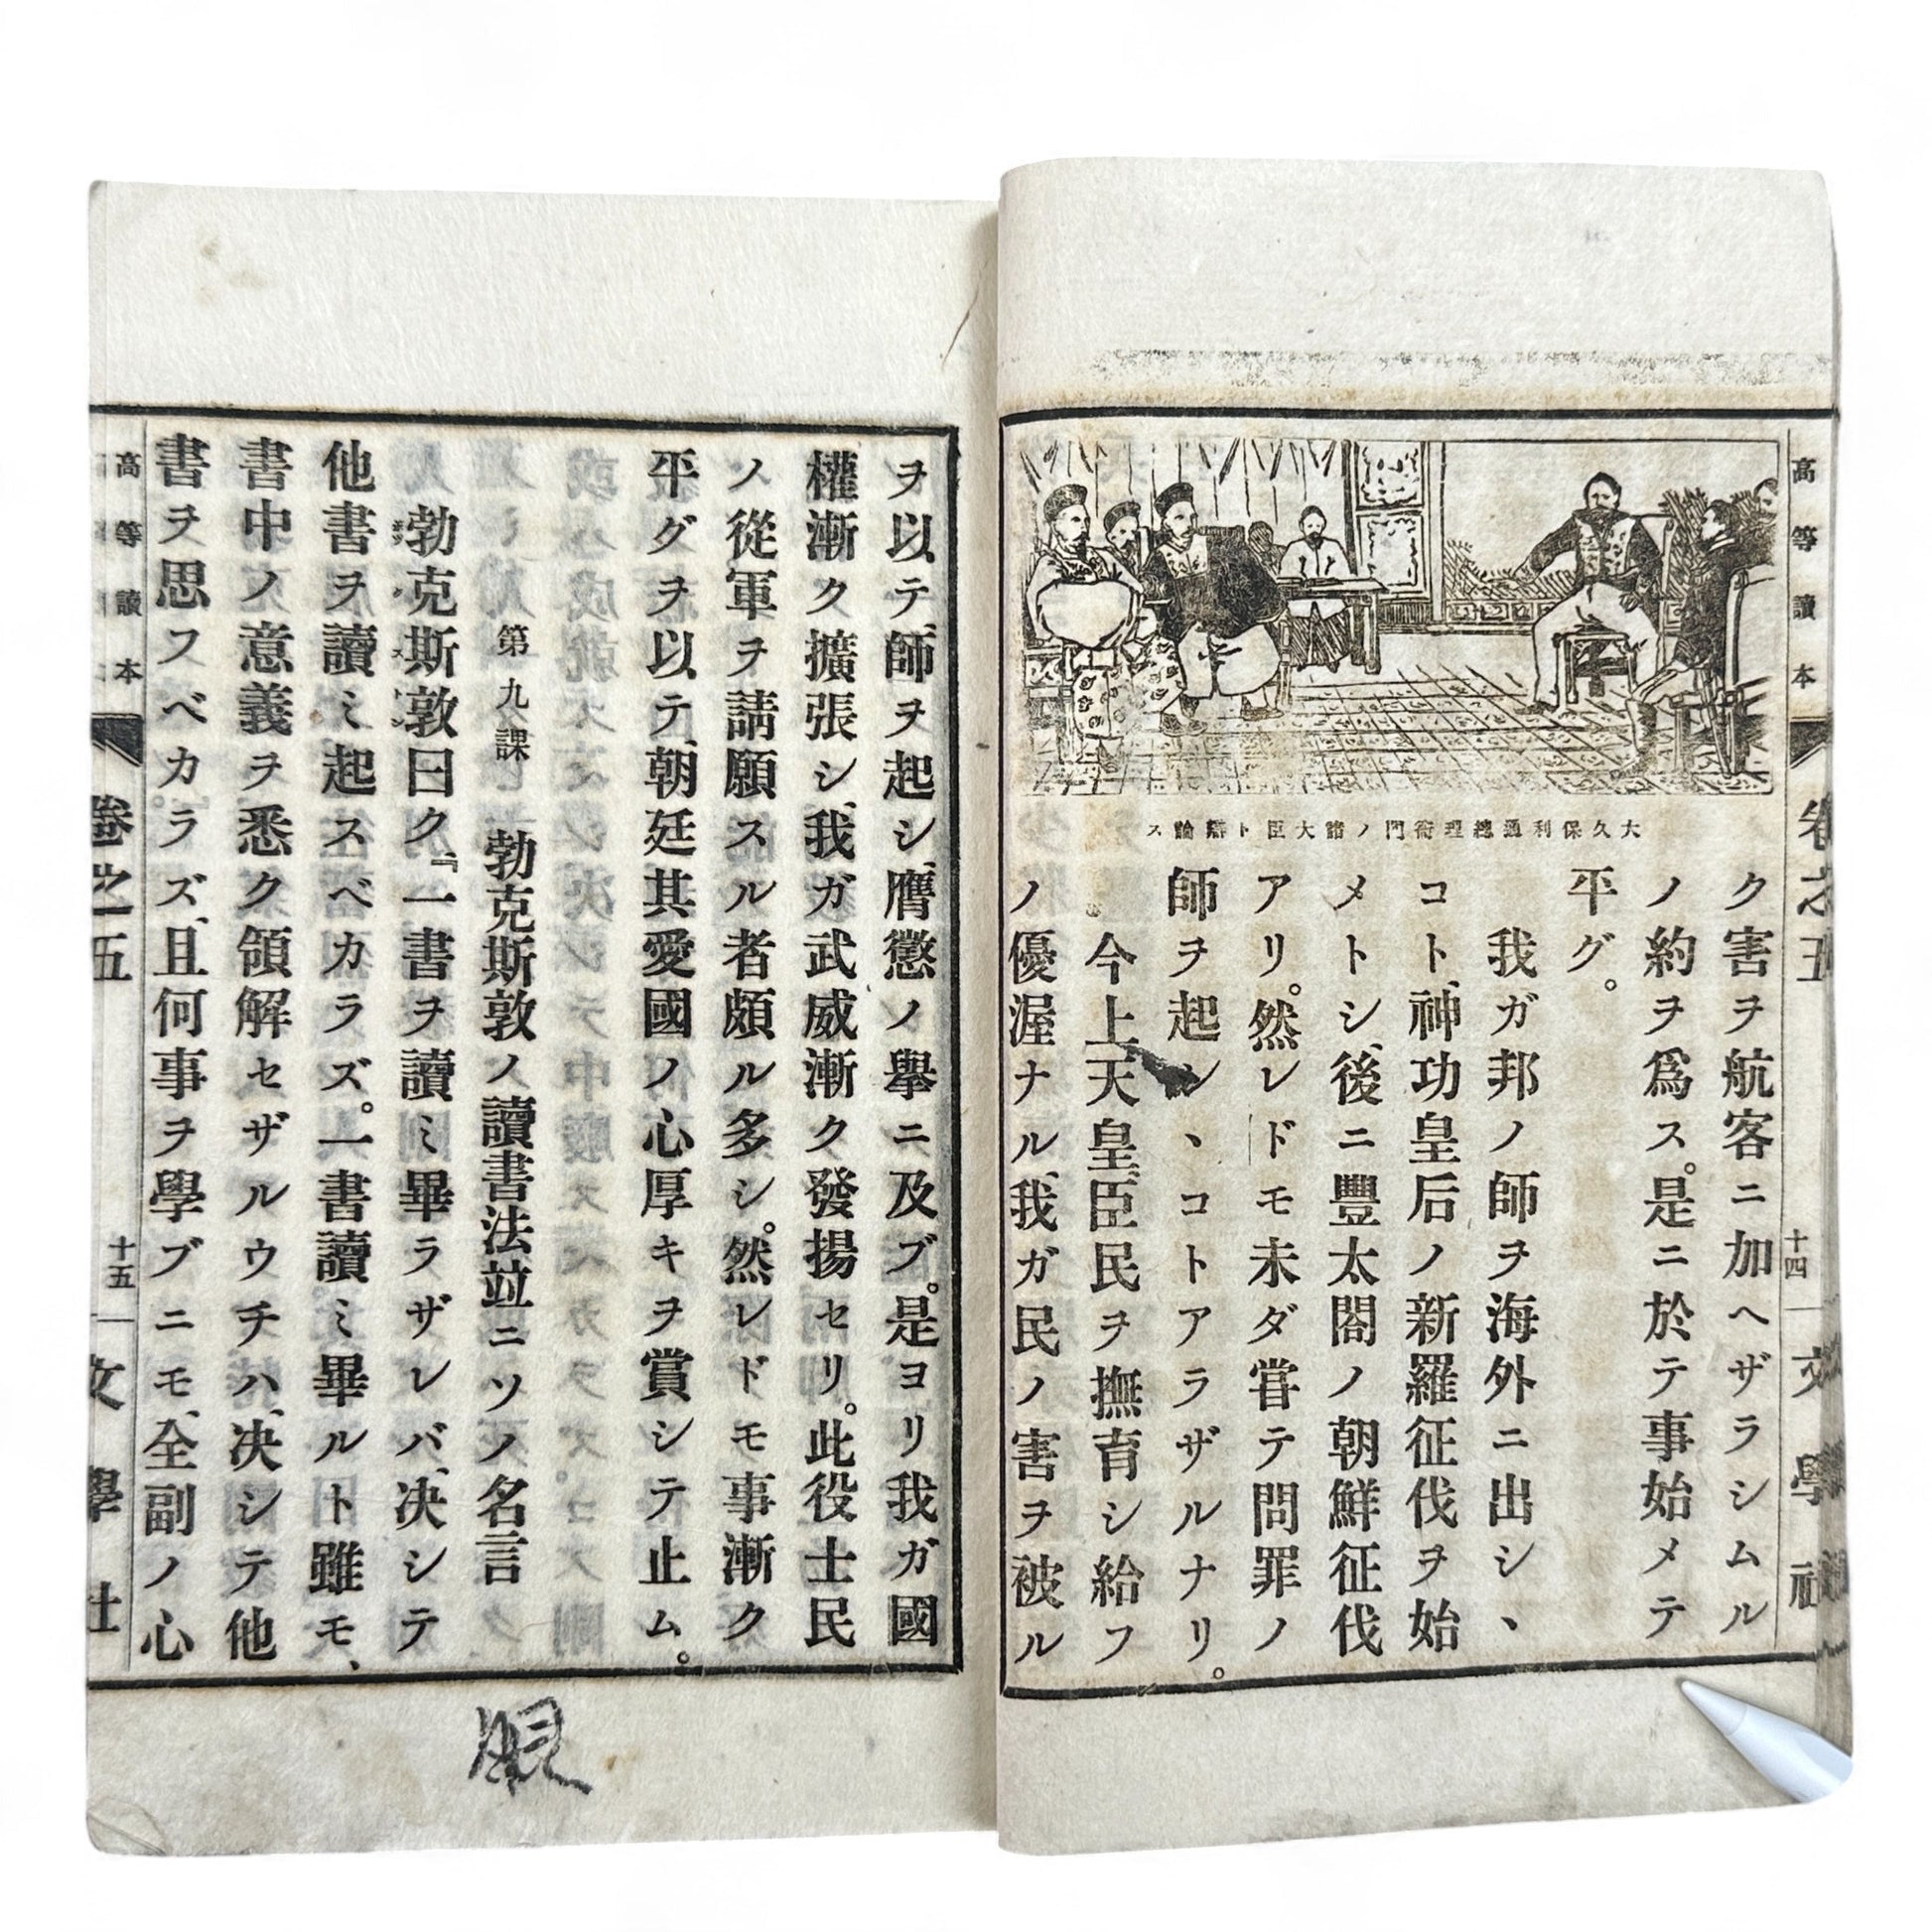 高等讀本
卷之五
十四
文學社
大久保利通總理衙門ノ諸大臣ト辯論ス
ク害ヲ航客ニ加ヘザラシムル
ノ約ヲ爲ス。是ニ於テ事始メテ
平グ。
我ガ邦ノ師ヲ海外ニ出シヽ
コト、神功皇后ノ新羅征伐ヲ始
メトシ、後ニ豐太閤ノ朝鮮征伐
アリ。然レドモ未ダ嘗テ問罪ノ
師ヲ起シヽコトアラザルナリ。
今上天皇、臣民ヲ撫育シ給フ
ノ優渥ナル、我ガ民ノ害ヲ被ル
ヲ以テ、師ヲ起シ、膺懲ノ擧ニ及ブ。是ヨリ我ガ國
權漸ク擴張シ、我ガ武威漸ク發揚セリ。此役士民
ノ從軍ヲ請願スル者頗ル多シ。然レドモ事漸ク
平グヲ以テ、朝廷其愛國ノ心厚キヲ賞シテ止ム。
第九課 勃克斯敦ノ讀書法竝ニソノ名言
勃克斯敦曰ク、『一書ヲ讀ミ畢ラザレバ、决シテ
他書ヲ讀ミ起スベカラズ。一書讀ミ畢ルト雖モ、
書中ノ意義ヲ悉ク領解セザルウチハ、决シテ他
書ヲ思フベカラズ、且何事ヲ學ブニモ、全副ノ心
高等讀本
卷之五
十五
文學社